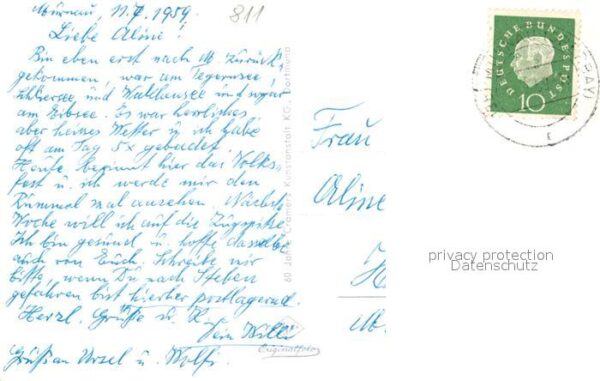 Murnau, 11.7.1959.
811
Liebe Aline!
Bin eben erst nach M. zurück-
gekommen, war am Tegernsee,
Schliersee, und Walchensee und sogar
am Eibsee. Es war herrliches
aber heißes Wetter u. ich habe
oft am Tag 5x gebadet.
Heute beginnt hier das Volks-
fest u. ich werde mir den
Rummel mal ansehen. Nächste
Woche will ich auf die Zugspitze.
Ich bin gesund u. hoffe dasselbe
auch von Euch. Schreibe mir
bitte, wenn Du nach Steben
gefahren bist hierher postlagernd.
Herzl. Grüße u. K.
Dein Willi
Grüß an Ursel u. Wolfi.
60 Jahre Cramers Kunstanstalt KG., Dortmund
Originalfoto
Frau
Aline
H
M.
DEUTSCHE BUNDESPOST
10
privacy protection
Datenschutz